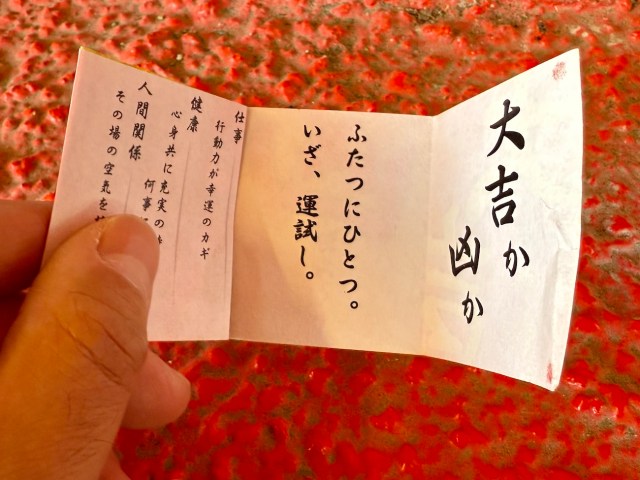 大吉か
凶か
ふたつにひとつ。
いざ、運試し。
仕事
行動力が幸運のカギ
健康
心身共に充実の
人間関係
何事
その場の空気を